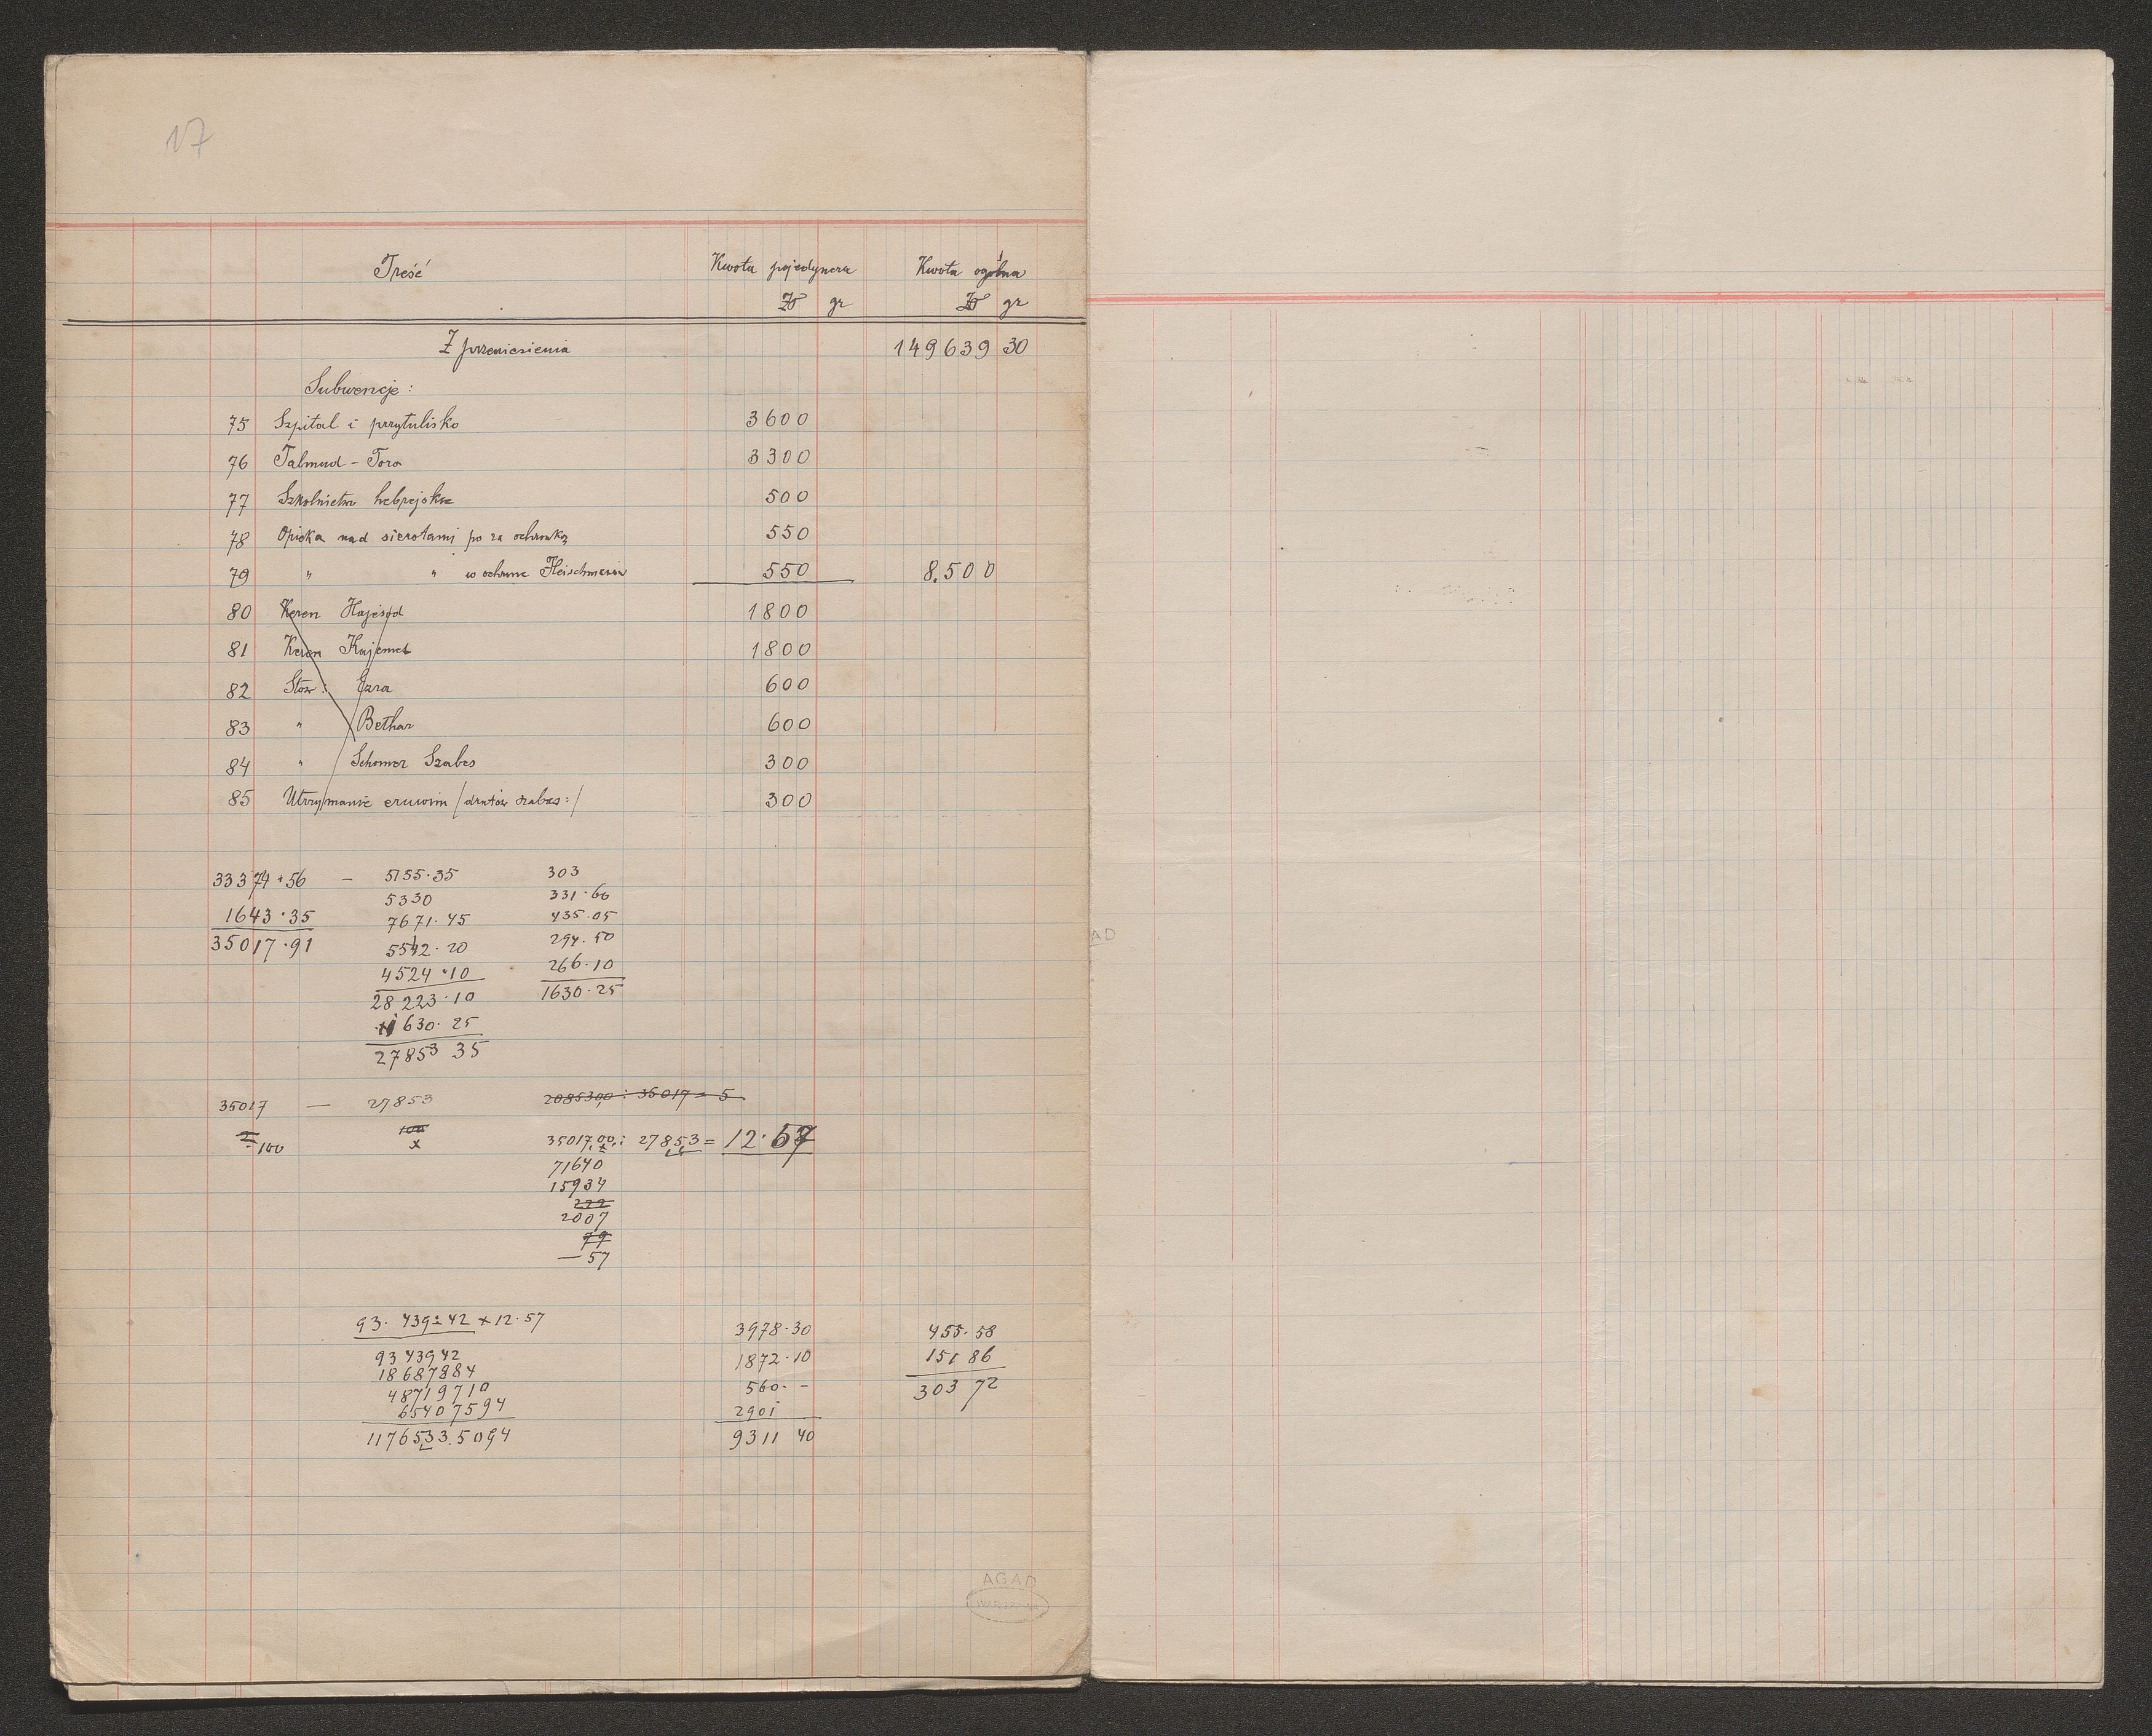 17
Treść Kwota pojedyncza Kwota ogólna
Zł gr Zł gr
Z przeniesienia 149639 30
Subwencje:
75 Szpital i przytulisko 3600
76 Talmud-Tora 3300
77 Szkolnictwo hebrajskie 500
78 Opieka nad sierotami po za ochronką 550
79 " " w ochronce 550 8.500
80 Keren Hajesod 1800
81 Keren Kajemet 1800
82 Stow: Ezra 600
83 " Bethar 600
84 " Schomer Szabes 300
85 Utrzymanie eruwim /drutów szabas:/ 300
33374·56 — 5155·35 303
5330 331·60
1643·35 7671·45 435·05
35017·91 5542·20 294·50
4524·10 266·10
28223·10 1630·25
1630·25
27853 35
35017 — 27853 2085300 : 35017 = 5
100 x 35017,00 : 27853 = 12·57
71640
15934
222
2007
79
— 57
93.439=42 x 12·57 3978·30 455·58
9343942 1872·10 151 86
18687884 560·- 303 72
48719710 2901
65407594
1176533.5094 9311 40
AGAD
WARSZAWA
AD